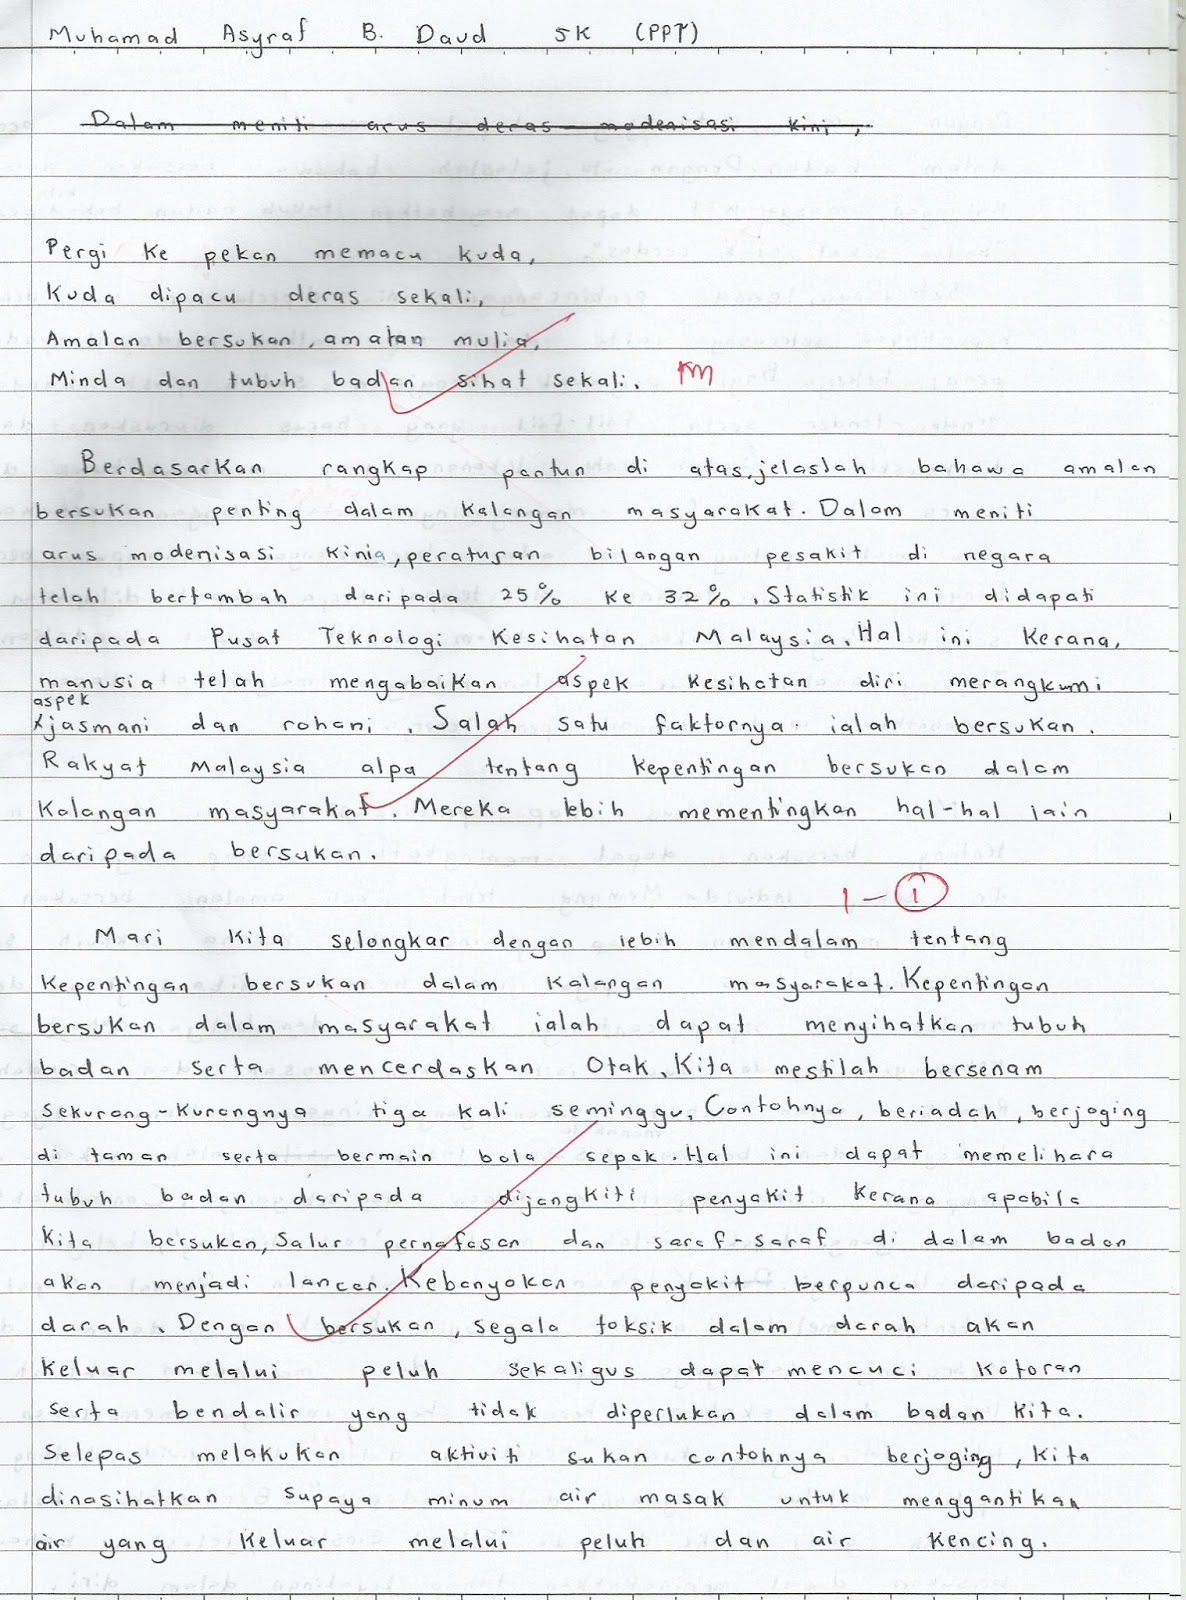 Muhamad Asyraf B. Daud 5K (PPT)
Dalam meniti arus deras modenisasi kini,
Pergi ke pekan memacu kuda,
Kuda dipacu deras sekali,
Amalan bersukan, amatan mulia,
Minda dan tubuh badan sihat sekali. KM
Berdasarkan rangkap pantun di atas, jelaslah bahawa amalan
bersukan penting dalam kalangan masyarakat. Dalam meniti
arus modenisasi kinia, peraturan bilangan pesakit di negara
telah bertambah daripada 25% ke 32%. Statistik ini didapati
daripada Pusat Teknologi Kesihatan Malaysia. Hal ini kerana,
manusia telah mengabaikan aspek kesihatan diri merangkumi
aspek
jasmani dan rohani. Salah satu faktornya ialah bersukan.
Rakyat Malaysia alpa tentang kepentingan bersukan dalam
kalangan masyarakat. Mereka lebih mementingkan hal-hal lain
daripada bersukan.
1 - i
Mari kita selongkar dengan lebih mendalam tentang
kepentingan bersukan dalam kalangan masyarakat. Kepentingan
bersukan dalam masyarakat ialah dapat menyihatkan tubuh
badan serta mencerdaskan otak. Kita mestilah bersenam
sekurang-kurangnya tiga kali seminggu. Contohnya, beriadah, berjoging
di taman serta bermain bola sepak. Hal ini dapat memelihara
tubuh badan daripada dijangkiti penyakit kerana apabila
kita bersukan, salur pernafasan dan saraf-saraf di dalam badan
akan menjadi lancar. Kebanyakan penyakit berpunca daripada
darah. Dengan bersukan, segala toksik dalam darah akan
keluar melalui peluh sekaligus dapat mencuci kotoran
serta bendalir yang tidak diperlukan dalam badan kita.
Selepas melakukan aktiviti sukan contohnya berjoging, kita
dinasihatkan supaya minum air masak untuk menggantikan
air yang keluar melalui peluh dan air kencing.